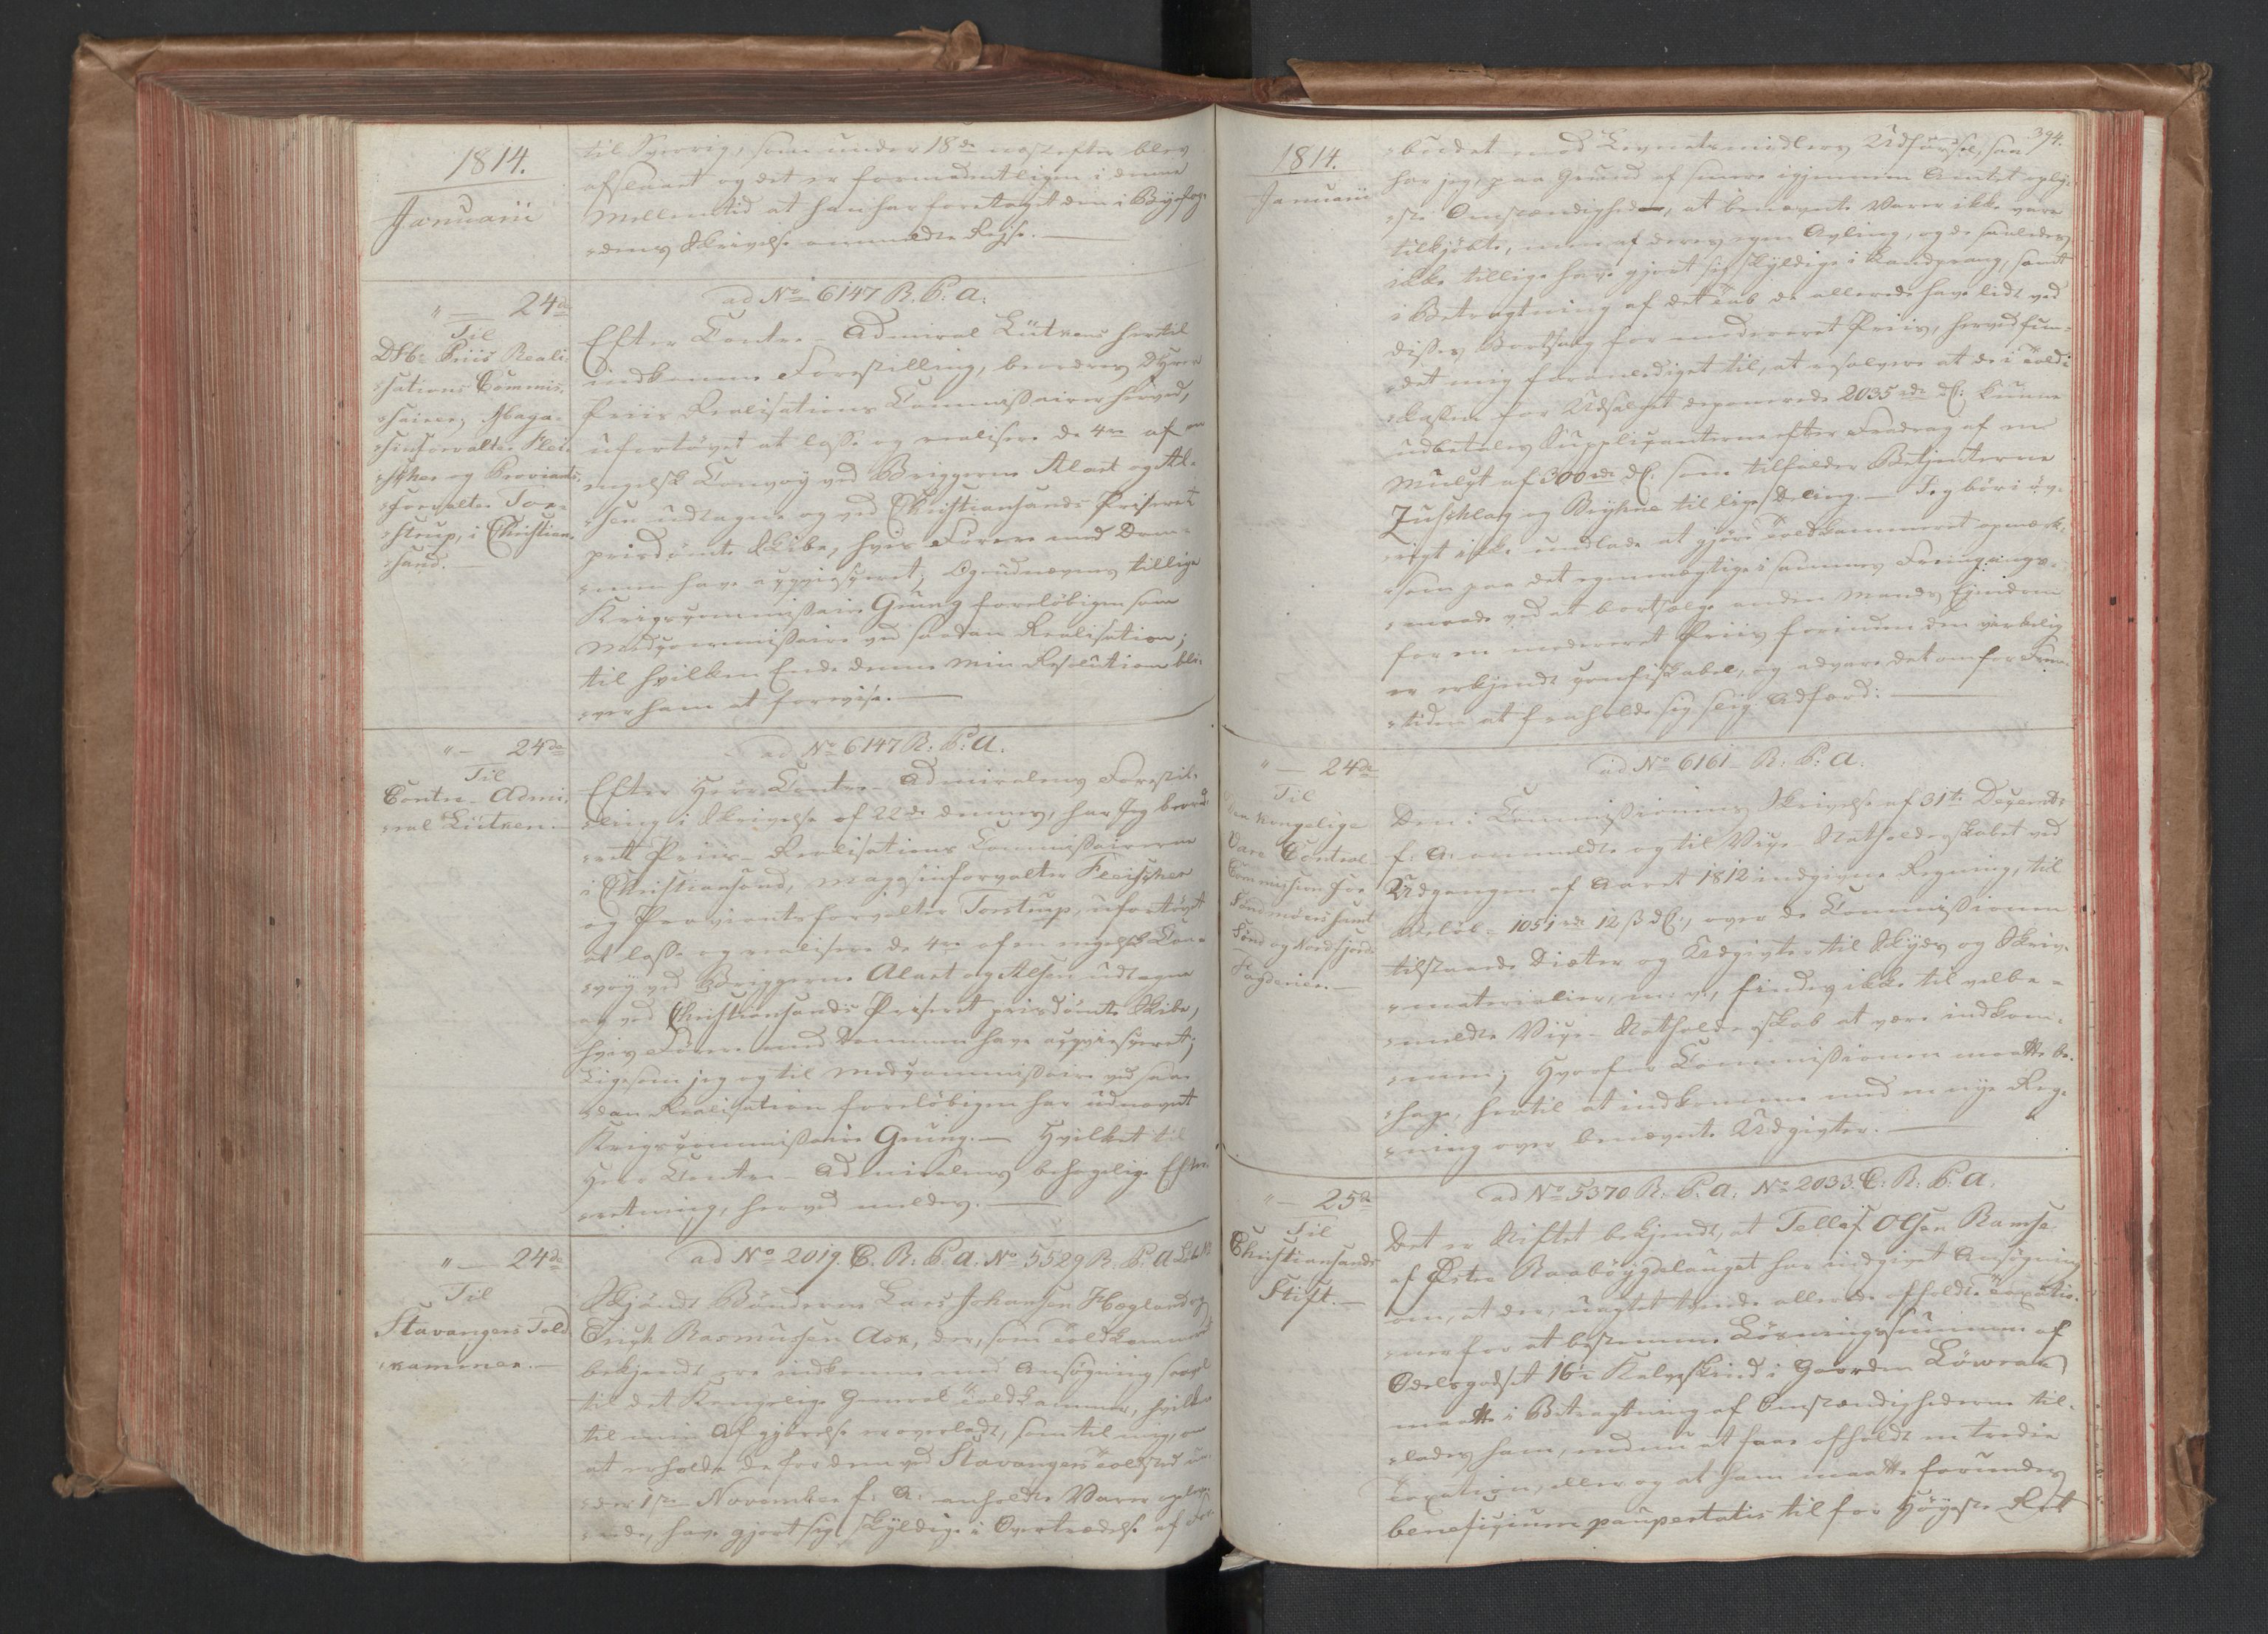 1814.
Januarii
til Sverrig, som under 18de næstefter blev
afslaaet og det er formodentligen i denne
Mellemtid at han har foretaget den i Byefog-
edens Skrivelse ommeldte Rejse.
" — 24de
Til
DHr: Priis Reali-
sations Commis-
sairer, Maga-
sinforvalter Flei-
scher og Proviant-
forvalter Tor-
strup, i Christian-
sand.
ad No 6147 R. P: A:
Efter Contre-Admiral Lütkens hertil
indkomne Forestilling, beordres DHrr
Priis Realisations Commissairer herved,
ufortøvet at losse og realisere de 4re af en
engelsk Convoy ved Briggerne Alart og Al-
sen udtagne og ved Christiansands Priseret
prisdømte Skibe, hvis Førere med Dom-
men have acqviesceret; Og udnævnes tillige
Krigscommissaire Grung foreløbigen som
Medcommissaire ved saadan Realisation;
til hvilken Ende denne min Resolution bli-
ver ham at forevise.
" — 24de
Til
Contre-Admi-
ral Lütken
ad No 6147 R: P: A.
Efter Herr Contre-Admiralens Forestil-
ling i Skrivelse af 22de dennes, har Jeg beord-
ret Priis-Realisations Commissairerne
i Christiansand, Magasinforvalter Fleischer
og Proviantforvalter Torstrup, ufortøvet
at losse og realisere de 4re af en engelsk Con-
voy ved Briggerne Alart og Alsen udtagne
og ved Christiansands Priseret prisdømte Skibe,
hvis Førere med Dommen have acqviesceret;
Ligesom jeg og til Medcommissaire ved saa-
dan Realisation foreløbigen har udnævnt
Krigscommissaire Grung. — Hvilket til
Herr Contre-Admiralens behagelige Efter-
retning, herved meldes.
" — 24de
Til
Stavangers Told-
kammer.
ad No 2019. C. R: P. A. No 5529 R: P: A
Skjøndt Bønderne Lars Johansen Hogland og
Erich Rasmussen Ask, der, som Toldkammeret
bekjendt, ere indkomne med Ansøgning saavel
til det Kongelige General Toldkammer, hvilken
til min Afgjørelse er overladt, som til mig, om
at erholde de for dem ved Stavangers Toldsted un-
der 1ste November f: A: anholdte Varer
have gjort sig skyldige i Overtrædelse af For-
394.
1814.
Januarii
budet mod Levnetsmidlers Udførsel, saa
har jeg, paa Grund af senere igjennem Amtet oply-
ste Omstændigheder, at benævnte Varer ikke vare
tilkjøbte, men af deres egen Avling, og de saaledes
ikke tillige have gjort sig skyldige i Landprang, samt
i Betragtning af det Tab de allerede have lidt ved
disses Bortsalg for modereret Priis, herved fun-
det mig foranlediget til, at resolvere at de i Told-
kassen for Udsalget deponerede 2035 rdr dC: kunne
udbetales Supplicanterne efter Fradrag af en
Mulct af 300 rdr dC. som tilfalder Betjenterne
Zuschlag og Bryhne til lige Deling. — Jeg bør i øv-
rigt ikke undlade at gjøre Toldkammeret opmærk-
som paa det egenmægtige i sammes Fremgangs-
maade ved at bortsælge anden Mands Ejendom
for en modereret Priis forinden den virkelig
er erkjendt confiskabel, og advare det om for Frem-
tiden at fraholde sig slig Adfærd:
" — 24de
Til
Den kongelige
Vare Control-
Commission for
Søndmøers samt
Sønd og Nordfjords
Fogderier.
ad No 6161 R: P: A.
Den i Commissionens Skrivelse af 31te Decembr
f: A: ommeldte og til Vice-Statholderskabet ved
Udgangen af Aaret 1812 indgivne Regning, til
Beløb 1051 rdr 12 ß dC:, over de Commissionen
tilstaaede Diæter og Udgivter til Skyds og Skriv-
materialier, m: v:, findes ikke til velbe-
meldte Vice-Statholderskab at være indkom-
men; Hvorfor Commissionen maatte be-
hage, hertil at indkomme med en nye Reg-
ning over benævnte Udgivter.
" — 25de
Til
Christiansands
Stift.
ad No 5370 R: P. A: No 2033. C: R: P. A.
Det er Stiftet bekjendt, at Tellef Olsen Ramse
af Østre Raabøygdelauget har indgivet Ansøgning
om, at der, uagtet tvende allerede afholdte Taxatio-
ner for at bestemme Løsningssummen af
Odelsgodset 16 1/2 Kalvskind i Gaarden Löwraa
maatte i Betragtning af Omstændighederne til-
lades ham, endnu at faae afholdt en tredie
Taxation, eller og at ham maatte forundes
beneficium paupertatis til for Høyeste Rett